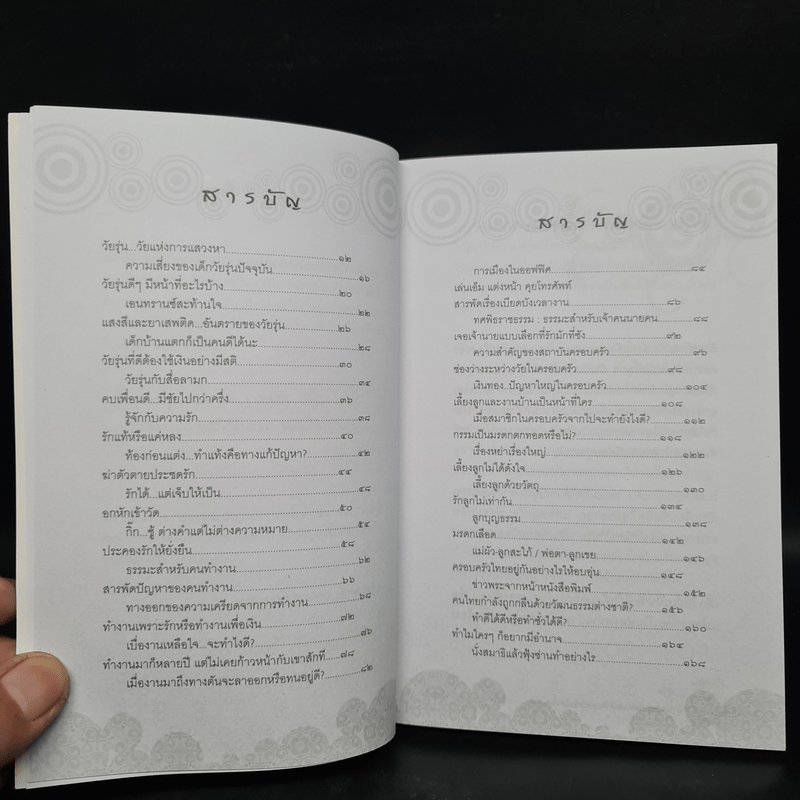 สารบัญ
วัยรุ่น...วัยแห่งการแสวงหา...............................๑๒
ความเสี่ยงของเด็กวัยรุ่นปัจจุบัน.....................๑๖
วัยรุ่นดีๆ มีหน้าที่อะไรบ้าง...............................๒๐
เอนทรานซ์สะท้านใจ...............................๒๒
แสงสีและยาเสพติด...อันตรายของวัยรุ่น...............๒๖
เด็กบ้านแตกก็เป็นคนดีได้นะ.........................๒๘
วัยรุ่นที่ดีต้องใช้เงินอย่างมีสติ.........................๓๐
วัยรุ่นกับสื่อลามก...............................๓๔
คบเพื่อนดี...มีชัยไปกว่าครึ่ง.........................๓๖
รู้จักกับความรัก...............................๓๘
รักแท้หรือแค่หลง...............................๔๐
ท้องก่อนแต่ง...ทำแท้งคือทางแก้ปัญหา?...............๔๒
ฆ่าตัวตายประชดรัก...............................๔๔
รักได้...แต่เจ็บให้เป็น...............................๔๘
อกหักเข้าวัด...............................๕๐
กิ๊ก...ชู้ ต่างคำแต่ไม่ต่างความหมาย...............๕๔
ประคองรักให้ยั่งยืน...............................๕๘
ธรรมะสำหรับคนทำงาน...............................๖๒
สารพัดปัญหาของคนทำงาน...............................๖๖
ทางออกของความเครียดจากการทำงาน...............๖๘
ทำงานเพราะรักหรือทำงานเพื่อเงิน...............๗๒
เบื่องานเหลือใจ...จะทำไงดี?...............๗๖
ทำงานมาก็หลายปี แต่ไม่เคยก้าวหน้ากับเขาสักที....๗๘
เมื่องานมาถึงทางตันจะลาออกหรือทนอยู่ดี?..........๘๒
สารบัญ
การเมืองในออฟฟิศ...............................๘๔
เล่นเอ็ม แต่งหน้า คุยโทรศัพท์
สารพัดเรื่องเบียดบังเวลางาน.........................๘๖
ทศพิธราชธรรม : ธรรมะสำหรับเจ้าคนนายคน..........๘๘
เจอเจ้านายแบบเลือกที่รักมักที่ชัง...............๙๒
ความสำคัญของสถาบันครอบครัว...............๙๖
ช่องว่างระหว่างวัยในครอบครัว...............๙๘
เงินทอง ปัญหาใหญ่ในครอบครัว...............๑๐๔
เลี้ยงลูกและงานบ้านเป็นหน้าที่ใคร...............๑๐๘
เมื่อสมาชิกในครอบครัวจากไปจะทำยังไงดี?..........๑๑๒
กรรมเป็นมรดกตกทอดหรือไม่?...............๑๑๘
เรื่องหย่าเรื่องใหญ่...............................๑๒๒
เลี้ยงลูกไม่ได้ดั่งใจ...............................๑๒๖
เลี้ยงลูกด้วยวัตถุ...............................๑๓๐
รักลูกไม่เท่ากัน...............................๑๓๔
ลูกบุญธรรม...............................๑๓๘
มรดกเลือด...............................๑๔๒
แม่ผัว-ลูกสะใภ้ / พ่อตา-ลูกเขย...............๑๔๖
ครอบครัวไทยอยู่กันอย่างไรให้อบอุ่น...............๑๔๘
ข่าวพระจากหน้าหนังสือพิมพ์...............๑๕๒
คนไทยกำลังถูกกลืนด้วยวัฒนธรรมต่างชาติ?..........๑๕๖
ทำดีได้ดีหรือทำชั่วได้ดี?...............๑๖๐
ทำไมใครๆ ก็อยากมีอำนาจ...............๑๖๔
นั่งสมาธิแล้วฟุ้งซ่านทำอย่างไร...............๑๖๘